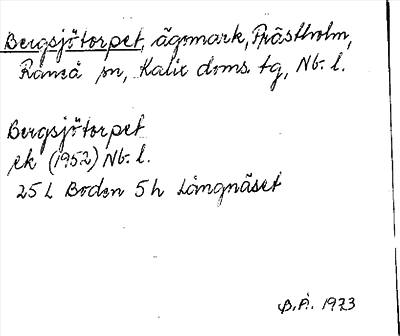 Bergsjötorpet, ägomark, Prästholm,
Råneå sn, Kalix doms. tg, Nb. l.
Bergsjötorpet
ek (1952) Nb. l.
25 L Boden 5 h Långnäset
B.Å. 1973